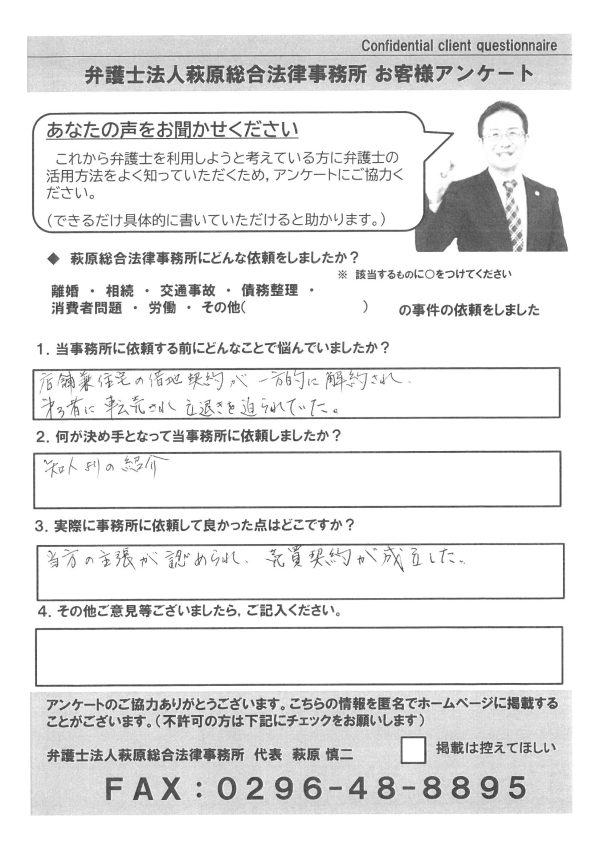 Confidential client questionnaire
弁護士法人萩原総合法律事務所 お客様アンケート
あなたの声をお聞かせください
これから弁護士を利用しようと考えている方に弁護士の
活用方法をよく知っていただくため,アンケートにご協力く
ださい。
(できるだけ具体的に書いていただけると助かります。)
◆ 萩原総合法律事務所にどんな依頼をしましたか?
※ 該当するものに○をつけてください
離婚 ・ 相続 ・ 交通事故 ・ 債務整理 ・
消費者問題 ・ 労働 ・ その他( ) の事件の依頼をしました
1.当事務所に依頼する前にどんなことで悩んでいましたか?
店舗兼住宅の借地契約が一方的に解約され、
第3者に転売され立退きを迫られていた。
2.何が決め手となって当事務所に依頼しましたか?
知人よりの紹介
3.実際に事務所に依頼して良かった点はどこですか?
当方の主張が認められ、売買契約が成立した。
4.その他ご意見等ございましたら,ご記入ください。
アンケートのご協力ありがとうございます。こちらの情報を匿名でホームページに掲載する
ことがございます。(不許可の方は下記にチェックをお願いします)
弁護士法人萩原総合法律事務所 代表 萩原 慎二 掲載は控えてほしい
FAX:0296-48-8895